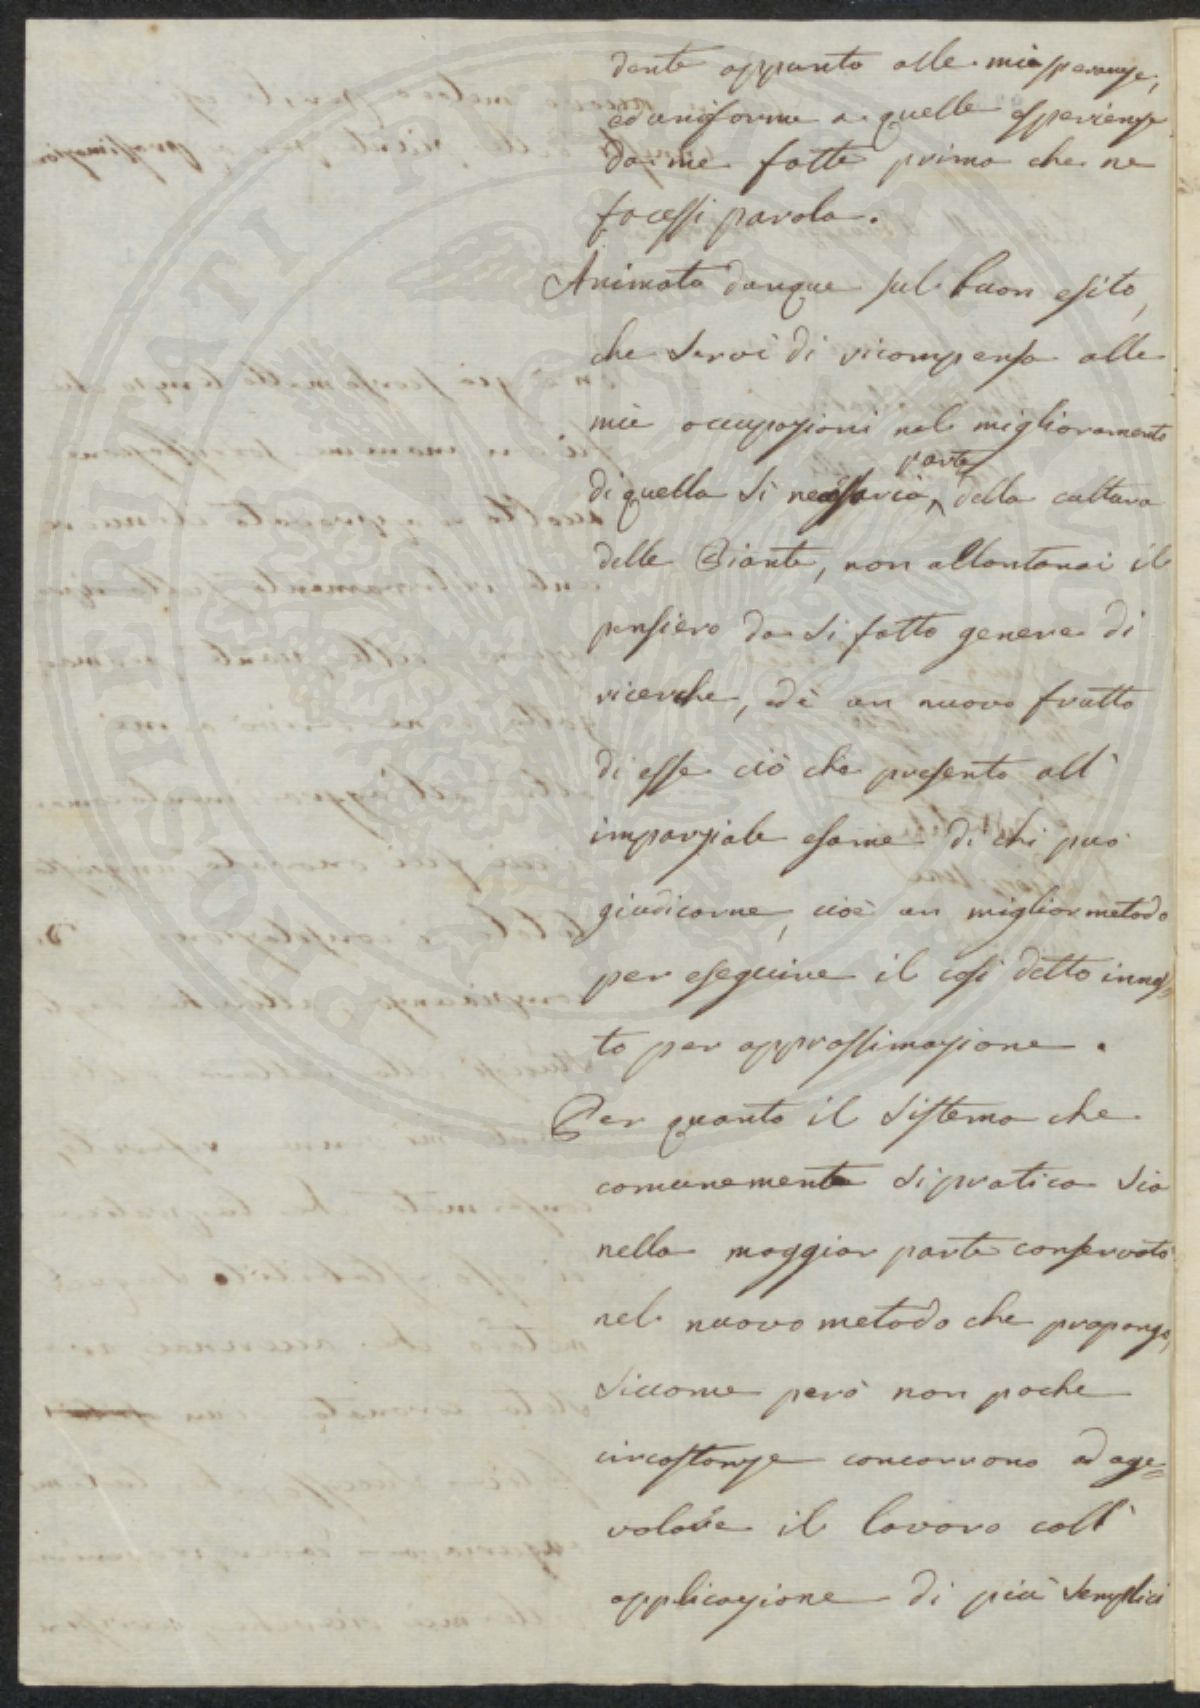 dente appunto alle mie speranze,
ed uniforme a quelle esperienze
da me fatte prima che ne
facessi parola.
Animato dunque sul buon esito,
che servì di ricompensa alle
mie occupazioni nel miglioramento
di quella sì necessaria parte della cultura
delle Piante, non allontanai il
pensiero da sì fatto genere di
ricerche, ed è un nuovo frutto
di esse ciò che presento all'
imparziale esame di chi può
giudicarne, cioè un miglior metodo
per eseguire il così detto innes=
to per approssimazione.
Per quanto il sistema che
comunemente si pratica sia
nella maggior parte conservato
nel nuovo metodo che propongo,
siccome però non poche
circostanze concorrono ad age=
volare il lavoro coll'
applicazione di più semplici